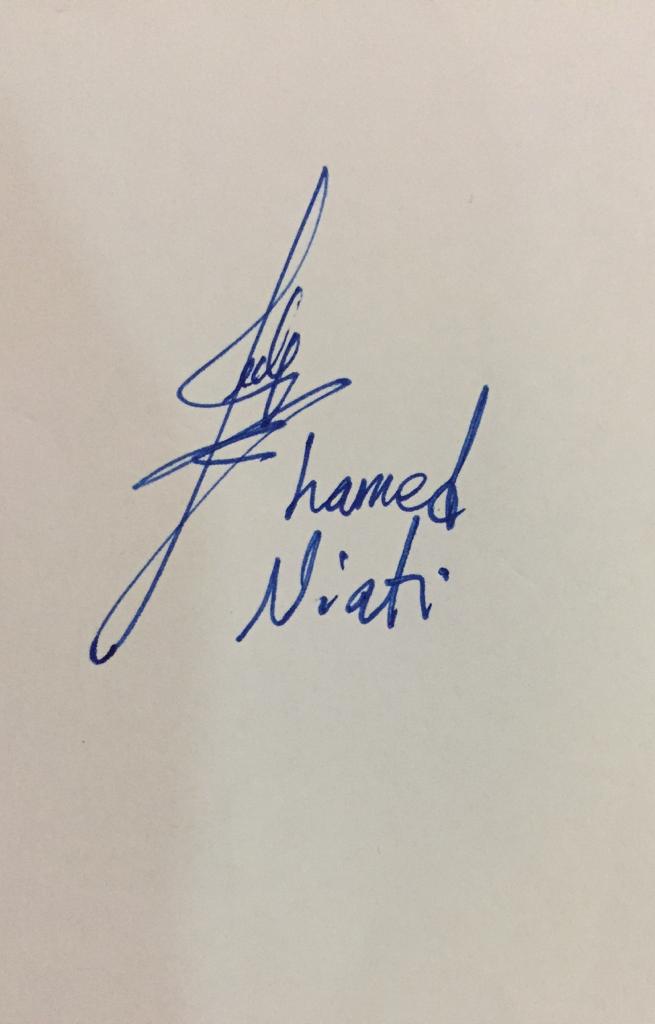 hamed
Niati